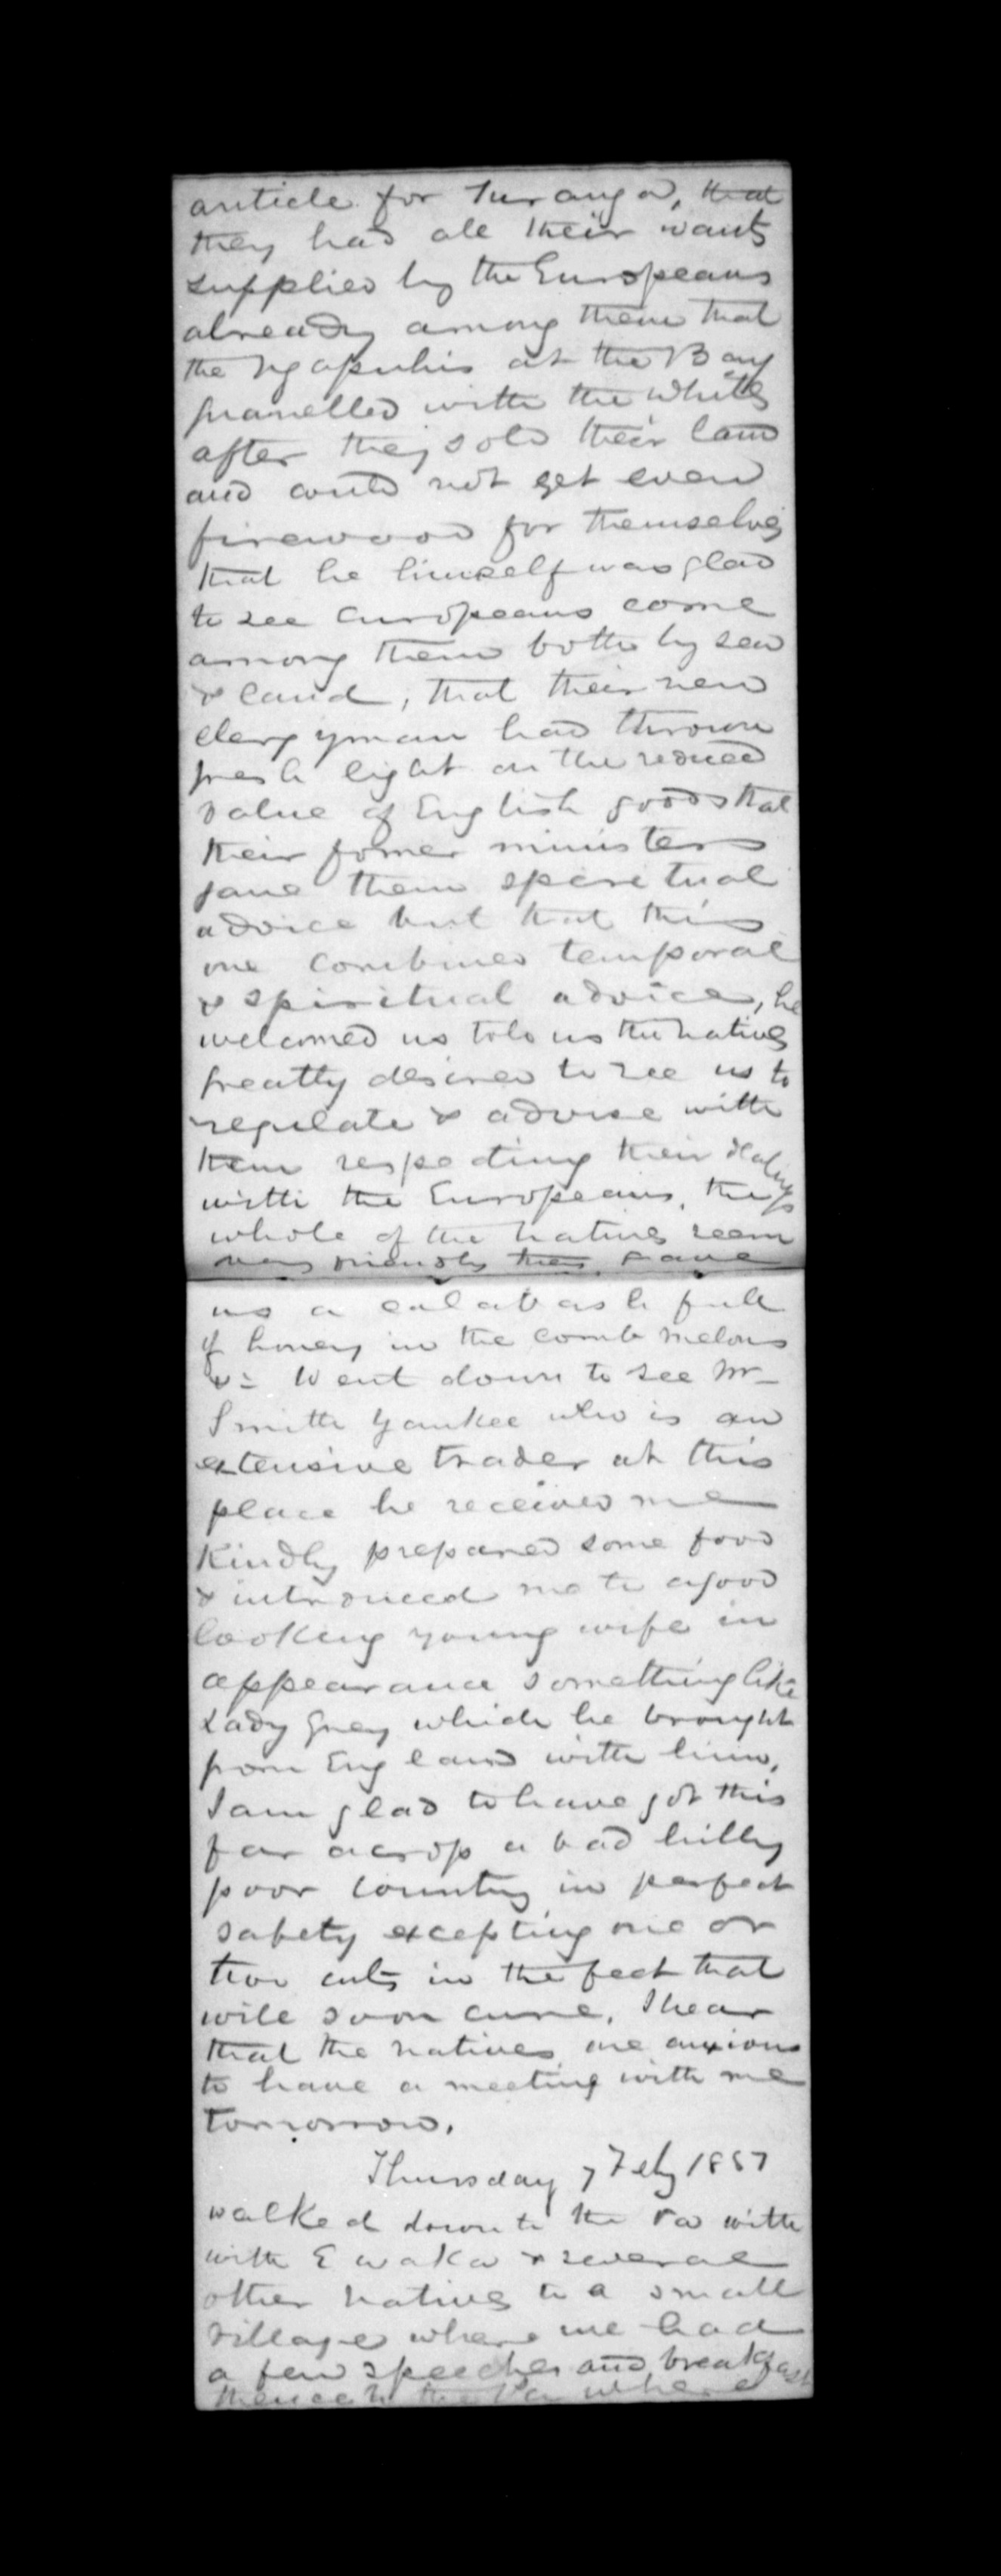 article for Turanga, that
they had all their wants
supplied by the Europeans
already among them that
the Ngapuhis at the Bay
quarrelled with the Whites
after they sold their land
and could not get even
firewood for themselves
that he himself was glad
to see Europeans come
among them both by sea
& land, that their new
clergyman had thrown
fresh light on the reduced
value of English goods that
their former ministers
gave them spiritual
advice but that this
one combined temporal
& spiritual advice, he
welcomed us told us the natives
greatly desired to see us to
regulate & advise with
them respecting their
with the Europeans. the
whole of the natives seem
very friendly they gave
us a calabash full
of honey in the comb melons
&c Went down to see Mr
Smith Yankee who is an
extensive trader at this
place he received me
kindly prepared some food
& introduced me to a good
looking young wife in
appearance something like
Lady Grey which he brought
from England with him,
I am glad to have got this
far across a bad hilly
poor country in perfect
safety excepting one or
two cuts in the feet that
will soon cure. I hear
that the natives are anxious
to have a meeting with me
tomorrow.
Thursday 7 Feby 1851
walked down to the Pa with
with E waka & several
other natives to a small
village where we had
a few speeches and breakfast
thence to the Pa where